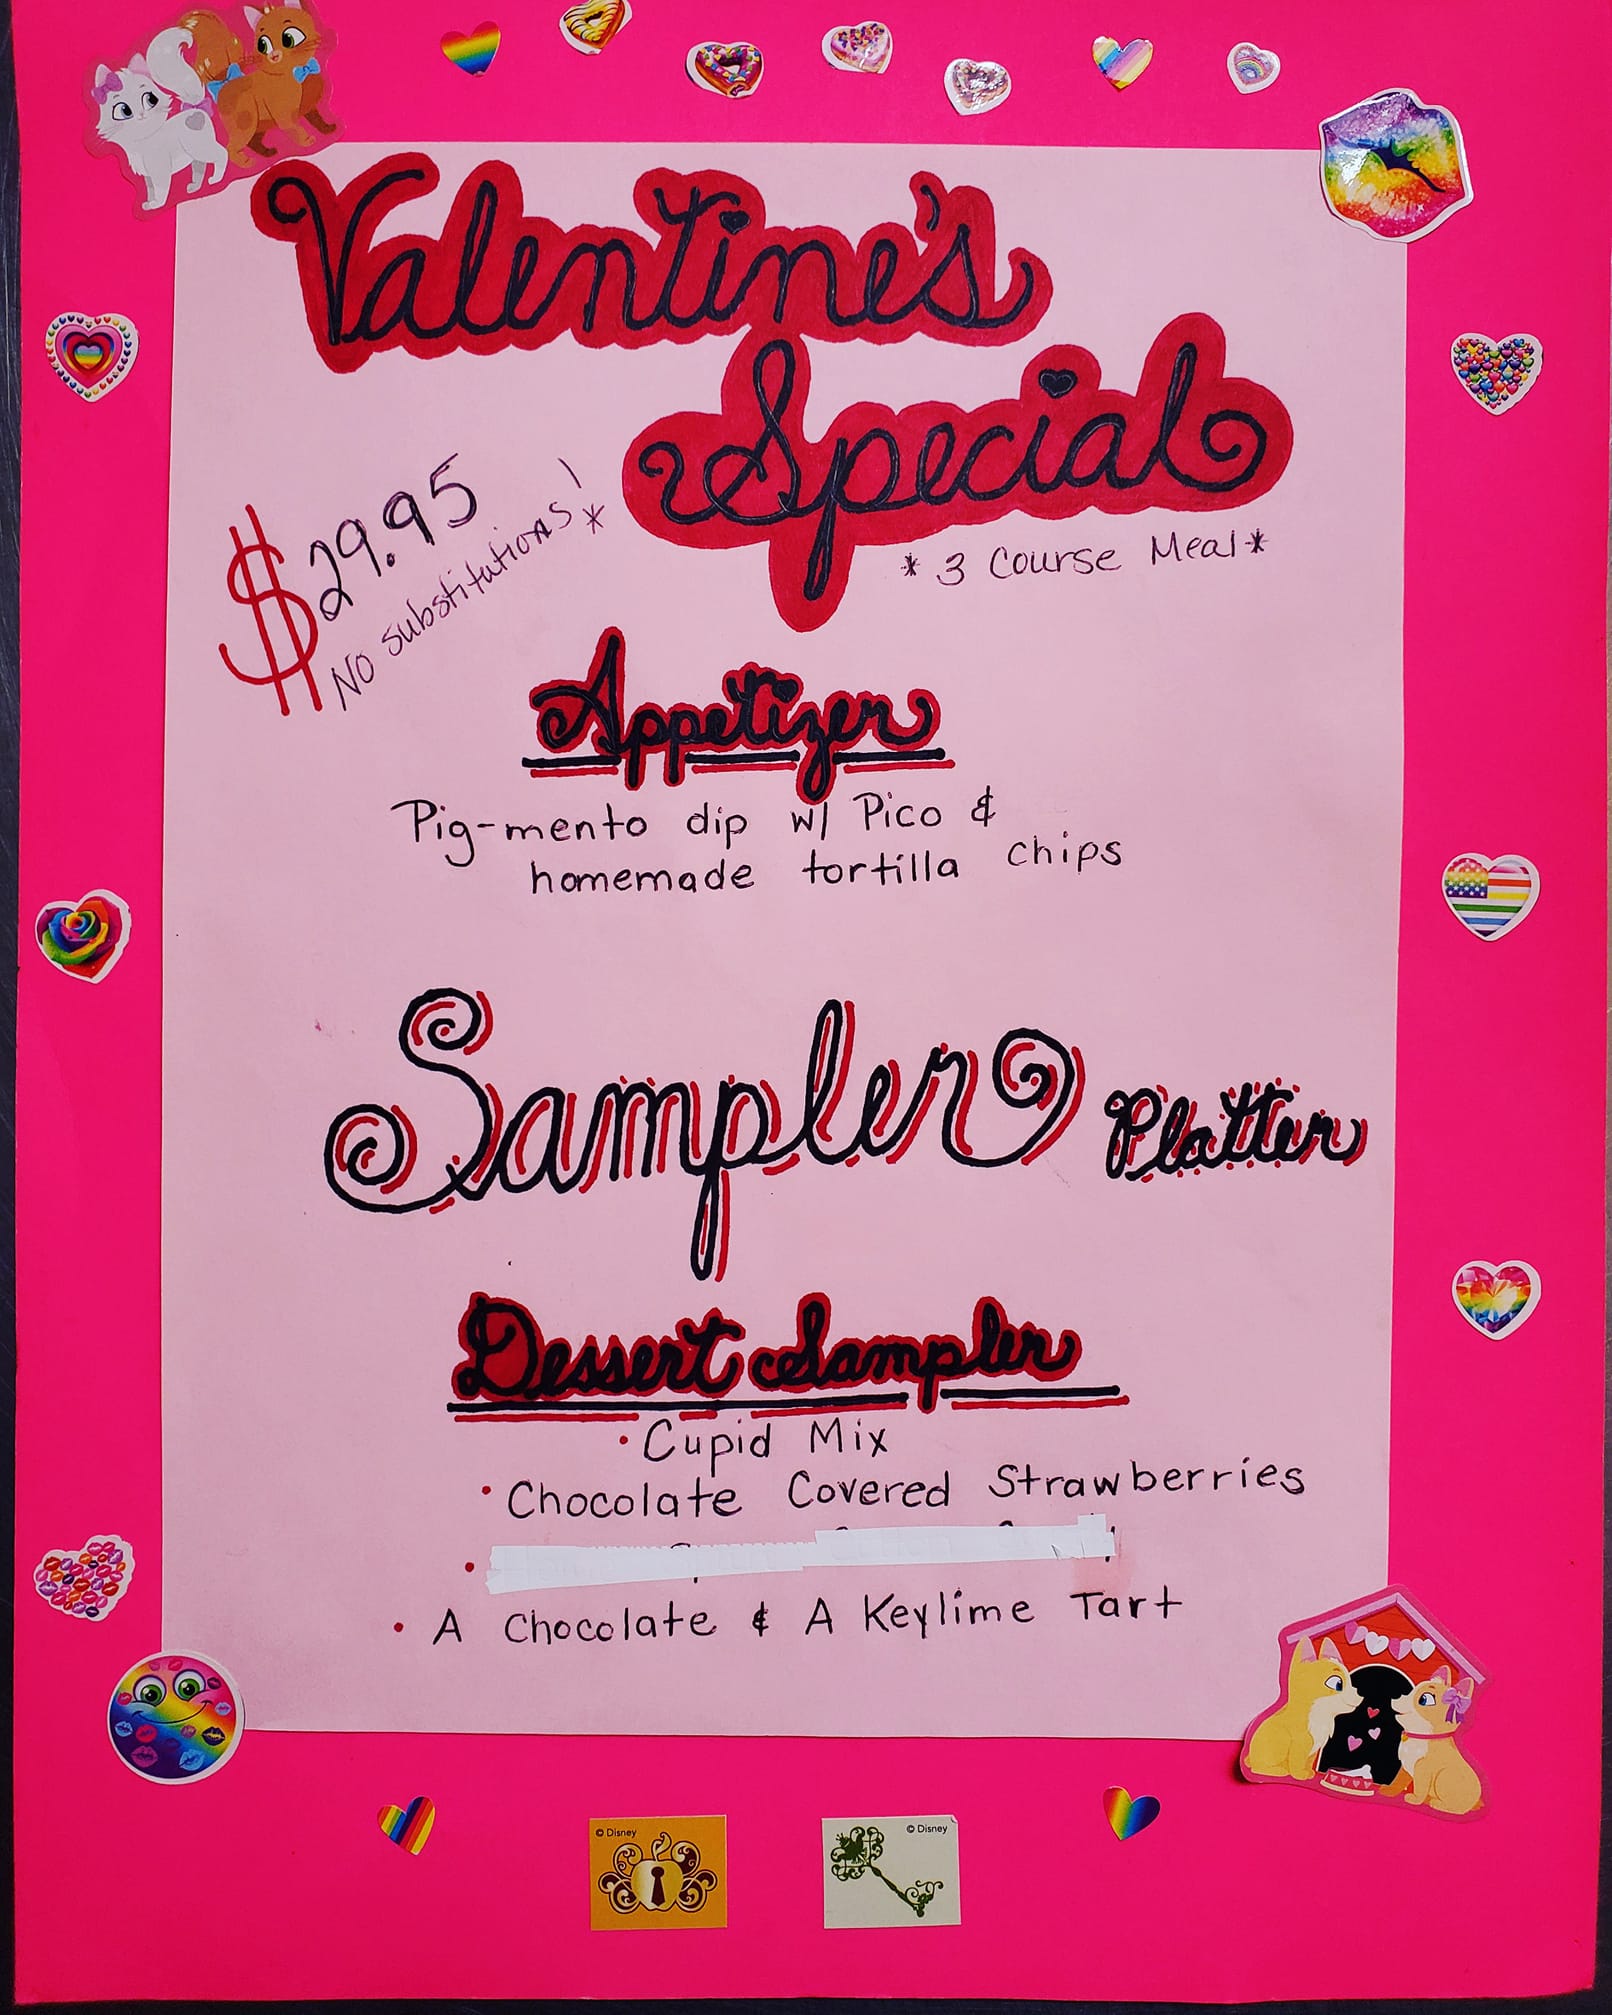 Valentine's
Special
$29.95
No substitutions!*
*3 Course Meal*
Appetizer
Pig-mento dip w/ Pico &
homemade tortilla chips
Sampler Platter
Dessert Sampler
• Cupid Mix
• Chocolate Covered Strawberries
•
• A Chocolate & A Keylime Tart
© Disney
© Disney